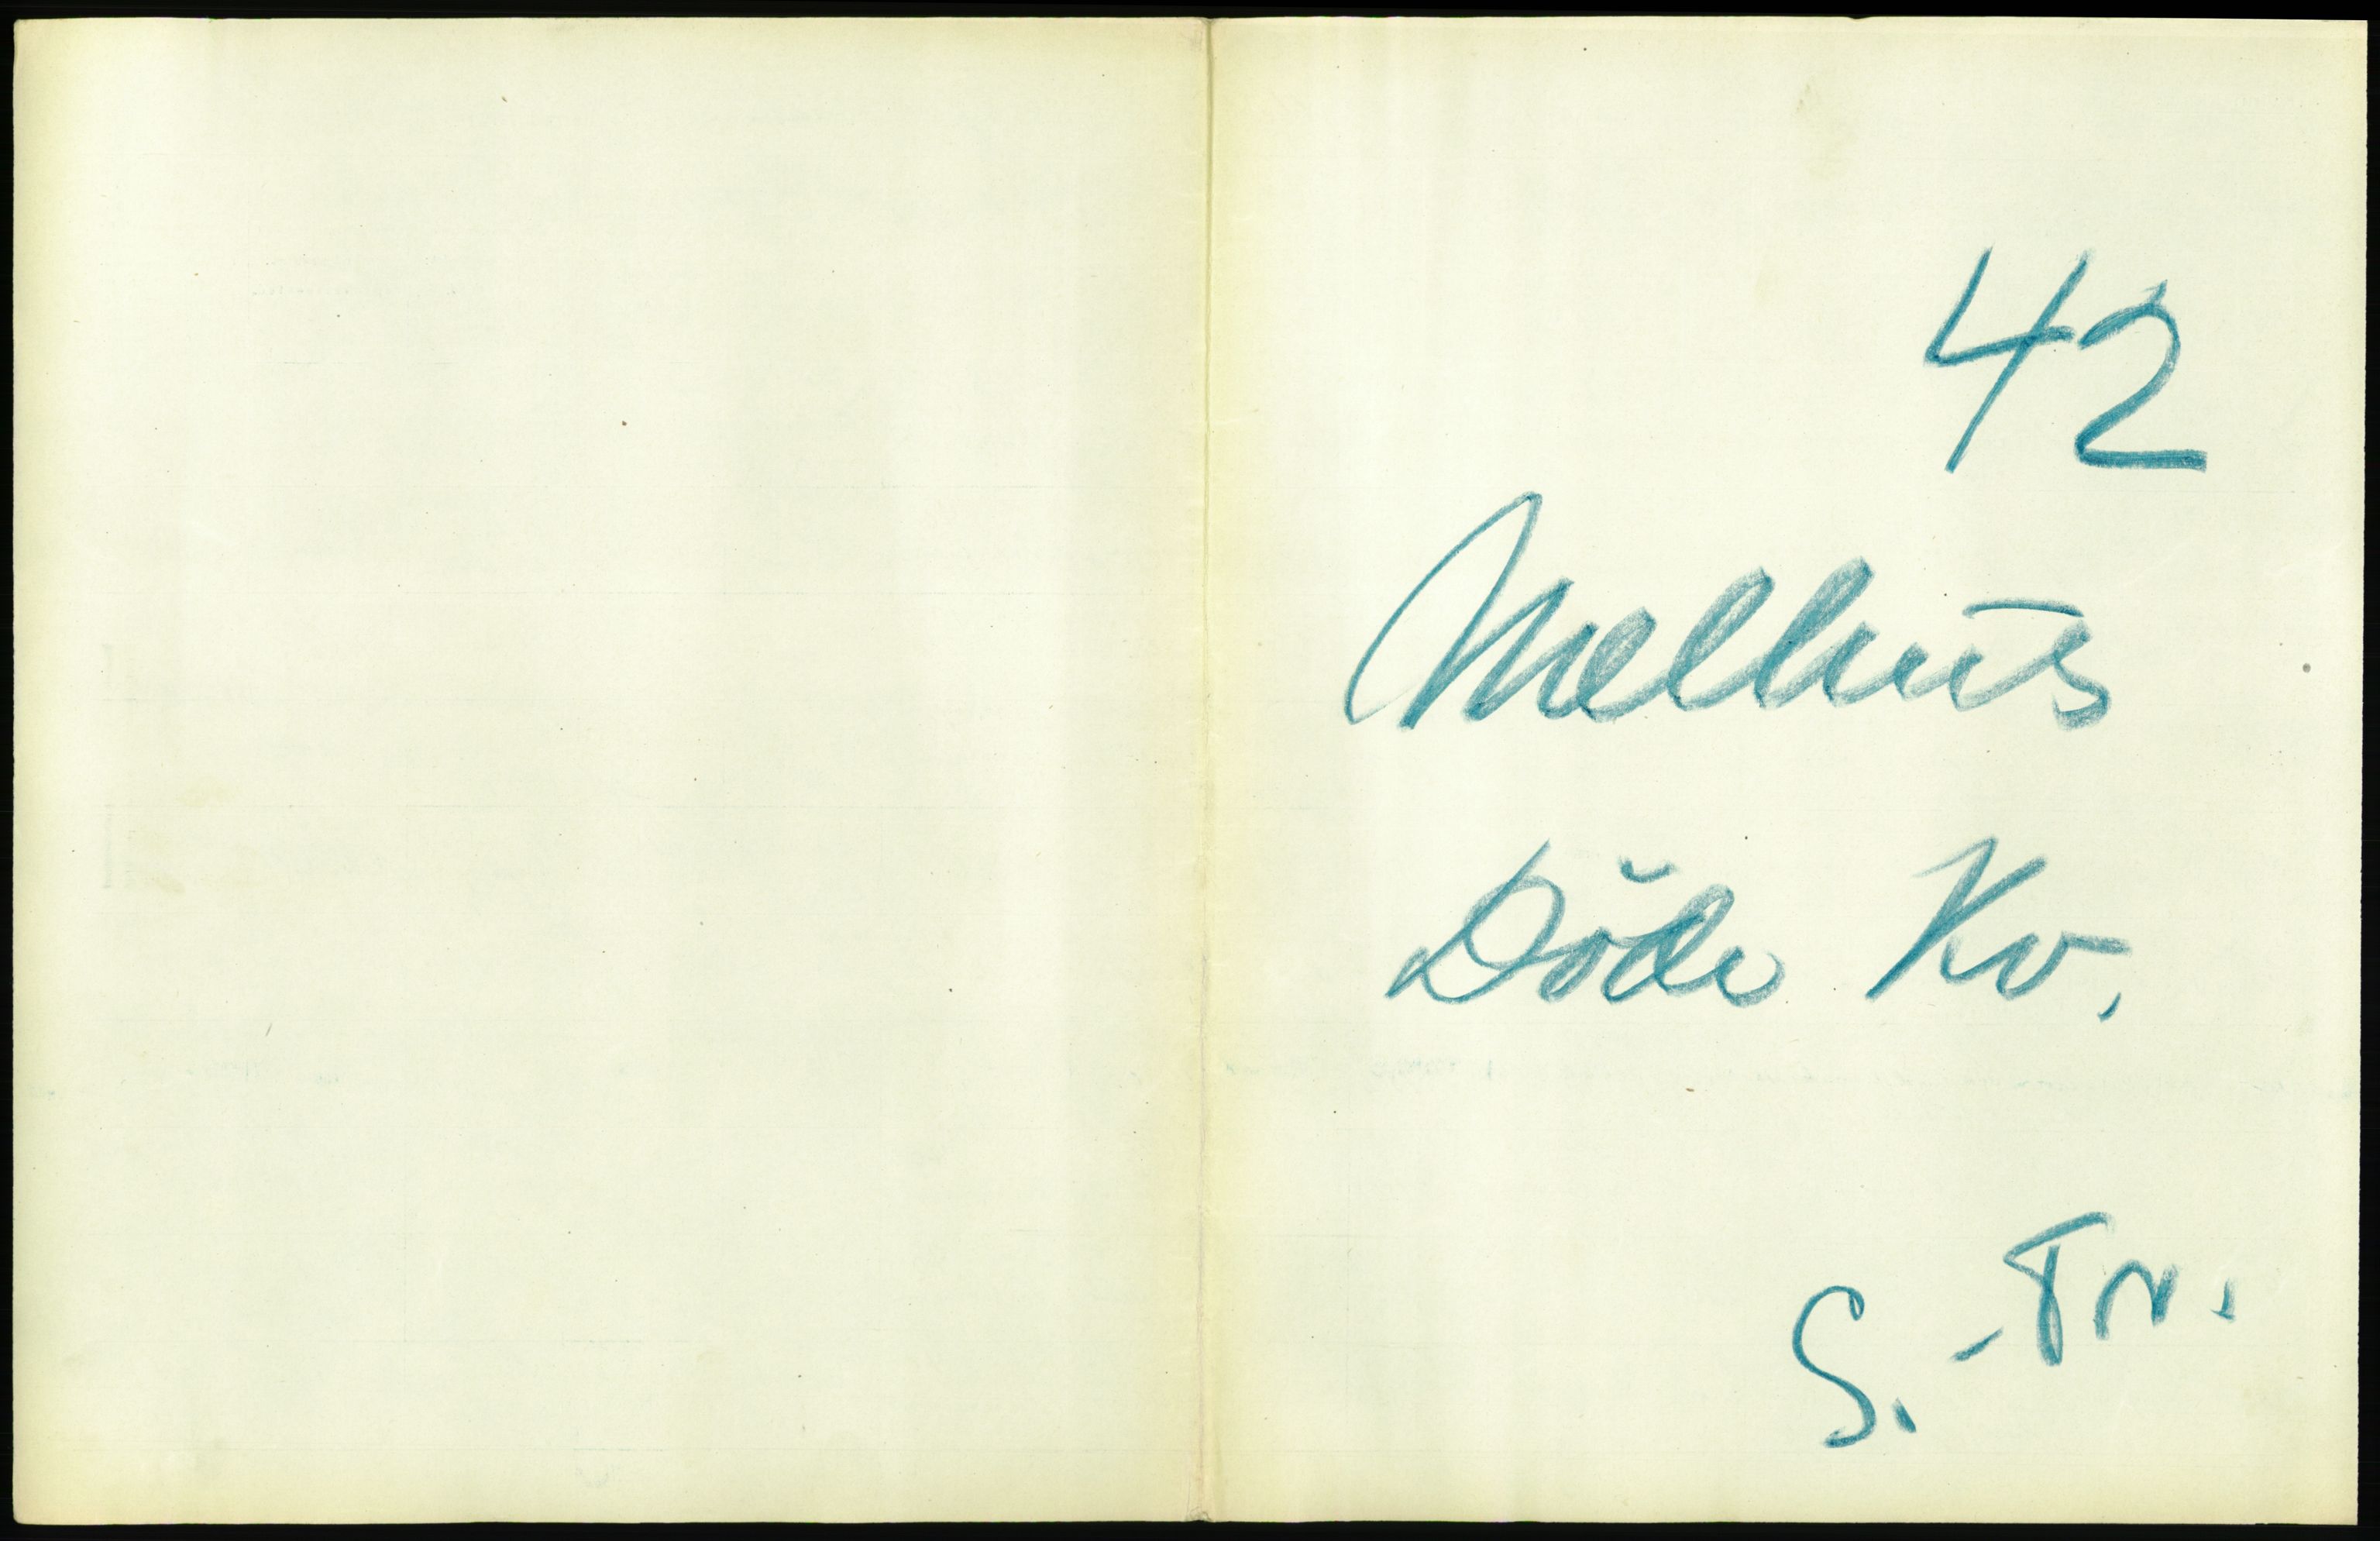 42
Melhus
Döde Kv.
S.-Tr.